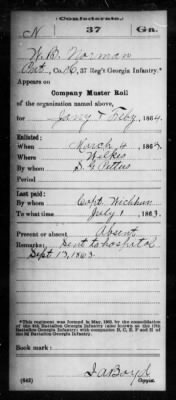 Confederate.
N 37 Ga.
W. B. Norman
Co. 37 Reg't Georgia Infantry.*
Appears on
Company Muster Roll
of the organization named above,
for Jany & Feby, 1864.
Enlisted:
When March 4, 1862.
Where Wilkes
By whom S. G. Pettus
Period
Last paid:
By whom Capt.
To what time July 1, 1863.
Present or absent Absent
Remarks: Sent to hospital
Sept. 17, 1863
*This regiment was formed in May, 1863, by the consolidation
of the 4th Battalion Georgia Infantry (also known as the 17th
Battalion Georgia Infantry) with companies B, C, E, F and H of
the 9th Battalion Georgia Infantry.
Book mark:
J A Boyd
(642) Copyist.